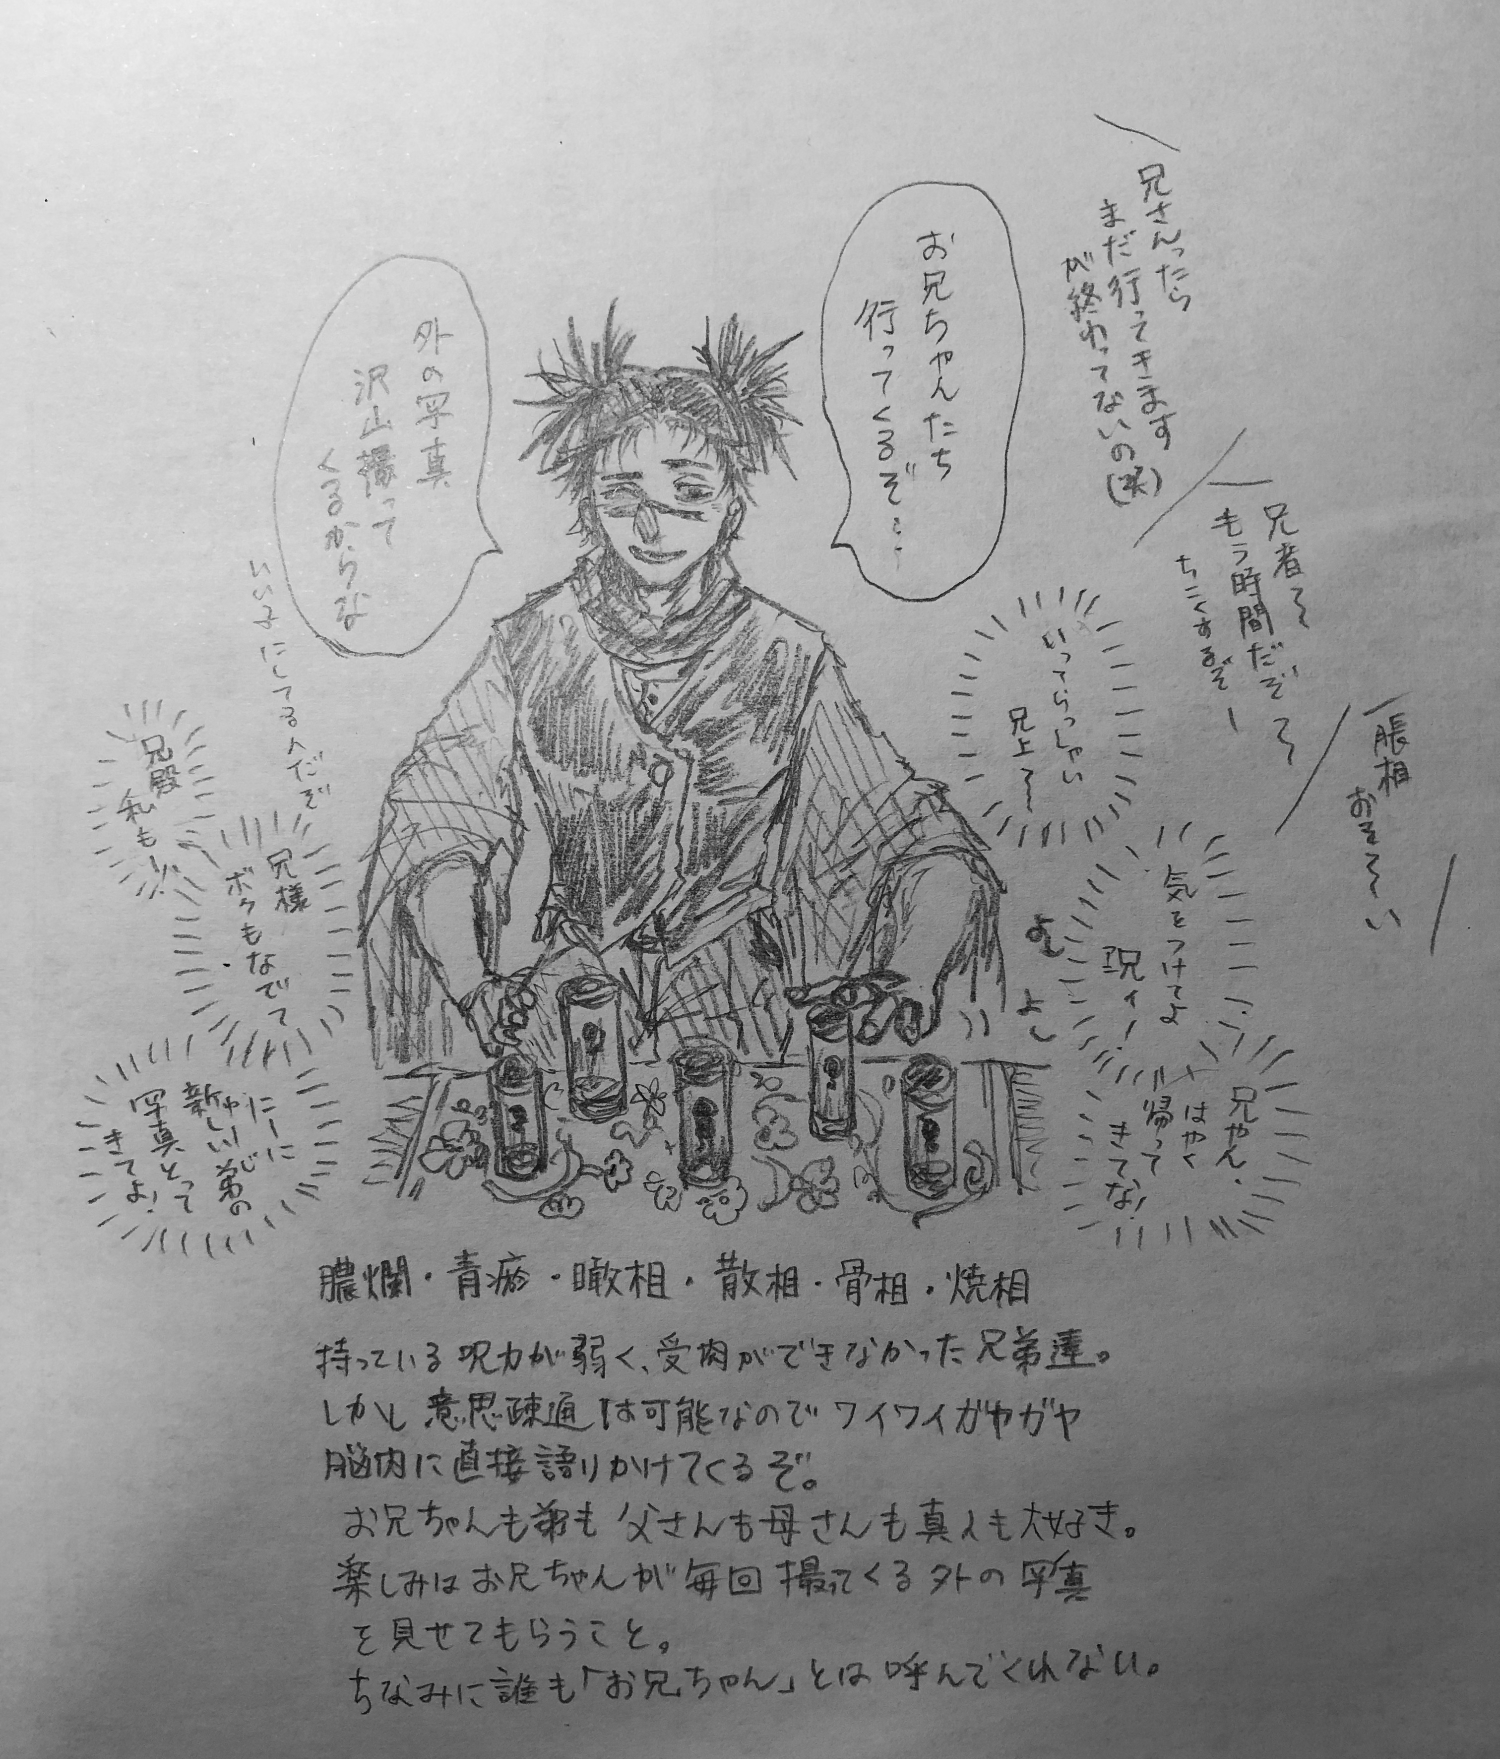 兄さんったら
まだ行ってきます
が終わってないの(笑)
お兄ちゃんたち
行ってくるぞ……
外の写真
沢山撮って
くるからな
いい子にしてるんだぞ
兄者〜
もう時間だぞ〜
ちこくするぞー
脹相
おそ〜い
いってらっしゃい
兄上〜
気をつけてよ
兄ィ!
兄やん、
はやく
帰って
きてな!
よし
よし
兄殿
私も!!
兄様
ボクもなでて
にーに
新しい弟の
写真とって
きてよ!
膿爛・青瘀・噉相・散相・骨相・焼相
持っている呪力が弱く、受肉ができなかった兄弟達。
しかし意思疎通は可能なのでワイワイガヤガヤ
脳内に直接語りかけてくるぞ。
お兄ちゃんも弟も父さんも母さんも真人も大好き。
楽しみはお兄ちゃんが毎回撮ってくる外の写真
を見せてもらうこと。
ちなみに誰も「お兄ちゃん」とは呼んでくれない。